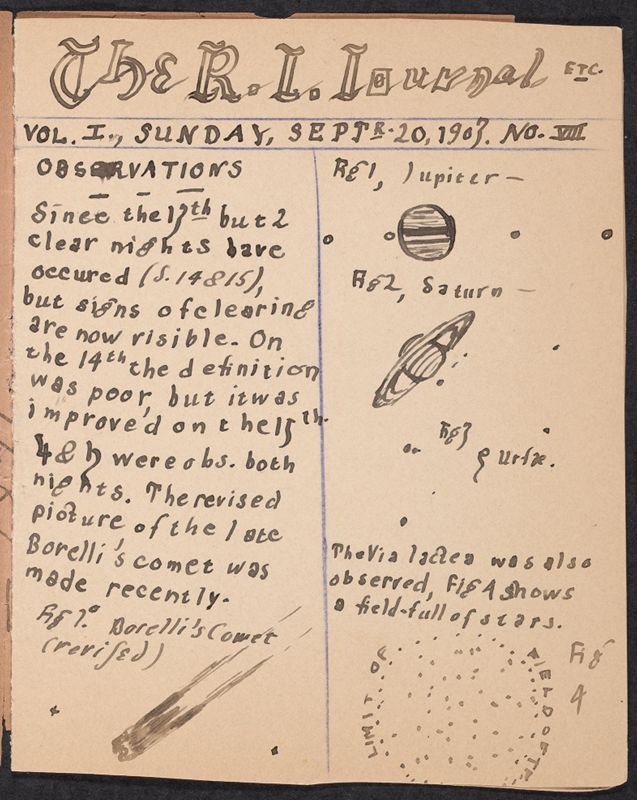 The R. I. Journal ETC.
VOL. I., SUNDAY, SEPTR. 20, 1903. NO. VIII
OBSERVATIONS
Since the 13th but 2
clear nights have
occured (S. 14 & 15),
but signs of clearing
are now visible. On
the 14th the definition
was poor, but it was
improved on the 15th.
♃ & ♄ were obs. both
nights. The revised
picture of the late
Borelli's comet was
made recently.
Fig 1.a Borelli's Comet
(revised)
Fig 1, Jupiter —
Fig 2, Saturn —
Fig 3
ζ Ursæ.
The Via lactea was also
observed, Fig 4 shows
a field-full of stars.
Fig
4
LIMIT OF
FIELD OF